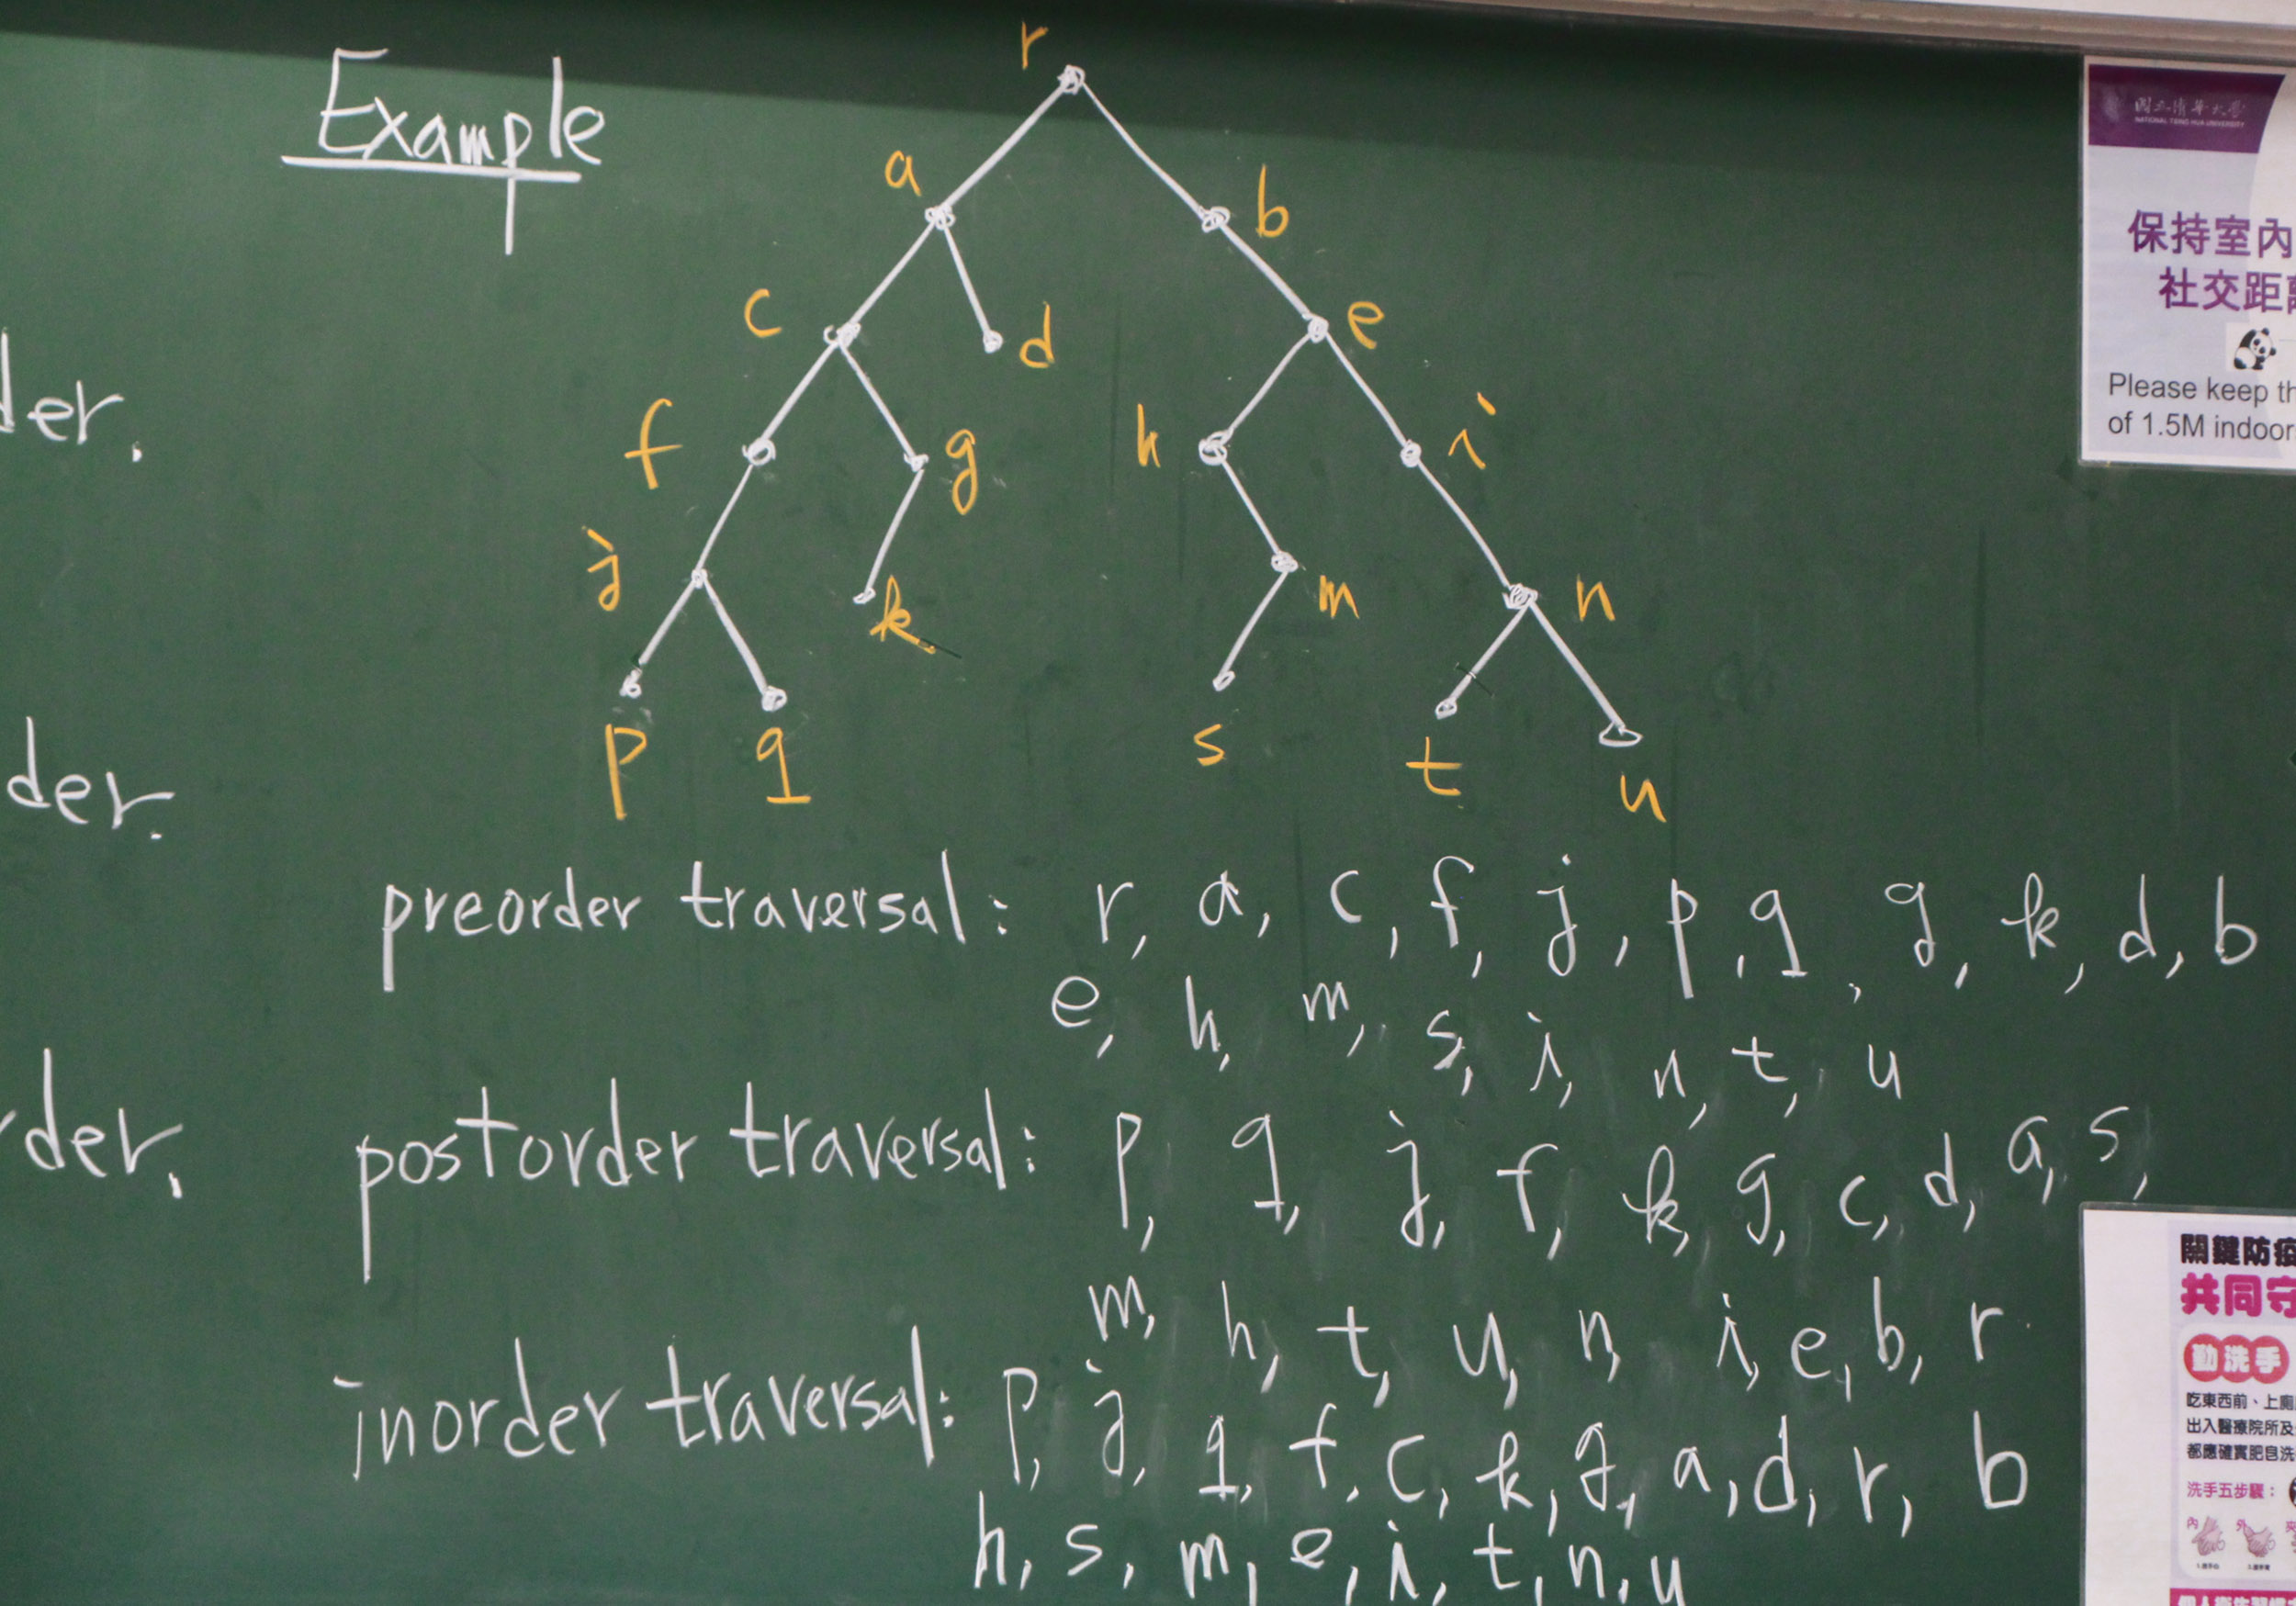 Example
r
a
b
c
d
e
f
g
h
i
j
k
m
n
p
q
s
t
u
der.
der.
rder.
preorder traversal: r, a, c, f, j, p, q, g, k, d, b
e, h, m, s, i, n, t, u
postorder traversal: p, q, j, f, k, g, c, d, a, s,
m, h, t, u, n, i, e, b, r
inorder traversal: p, j, q, f, c, k, g, a, d, r, b
h, s, m, e, i, t, n, u
國立清華大學
NATIONAL TSING HUA UNIVERSITY
保持室內
社交距離
Please keep th
of 1.5M indoor
關鍵防疫
共同守
勤洗手
吃東西前、上廁
出入醫療院所及
都應確實肥皂洗
洗手五步驟：
內
外
夾